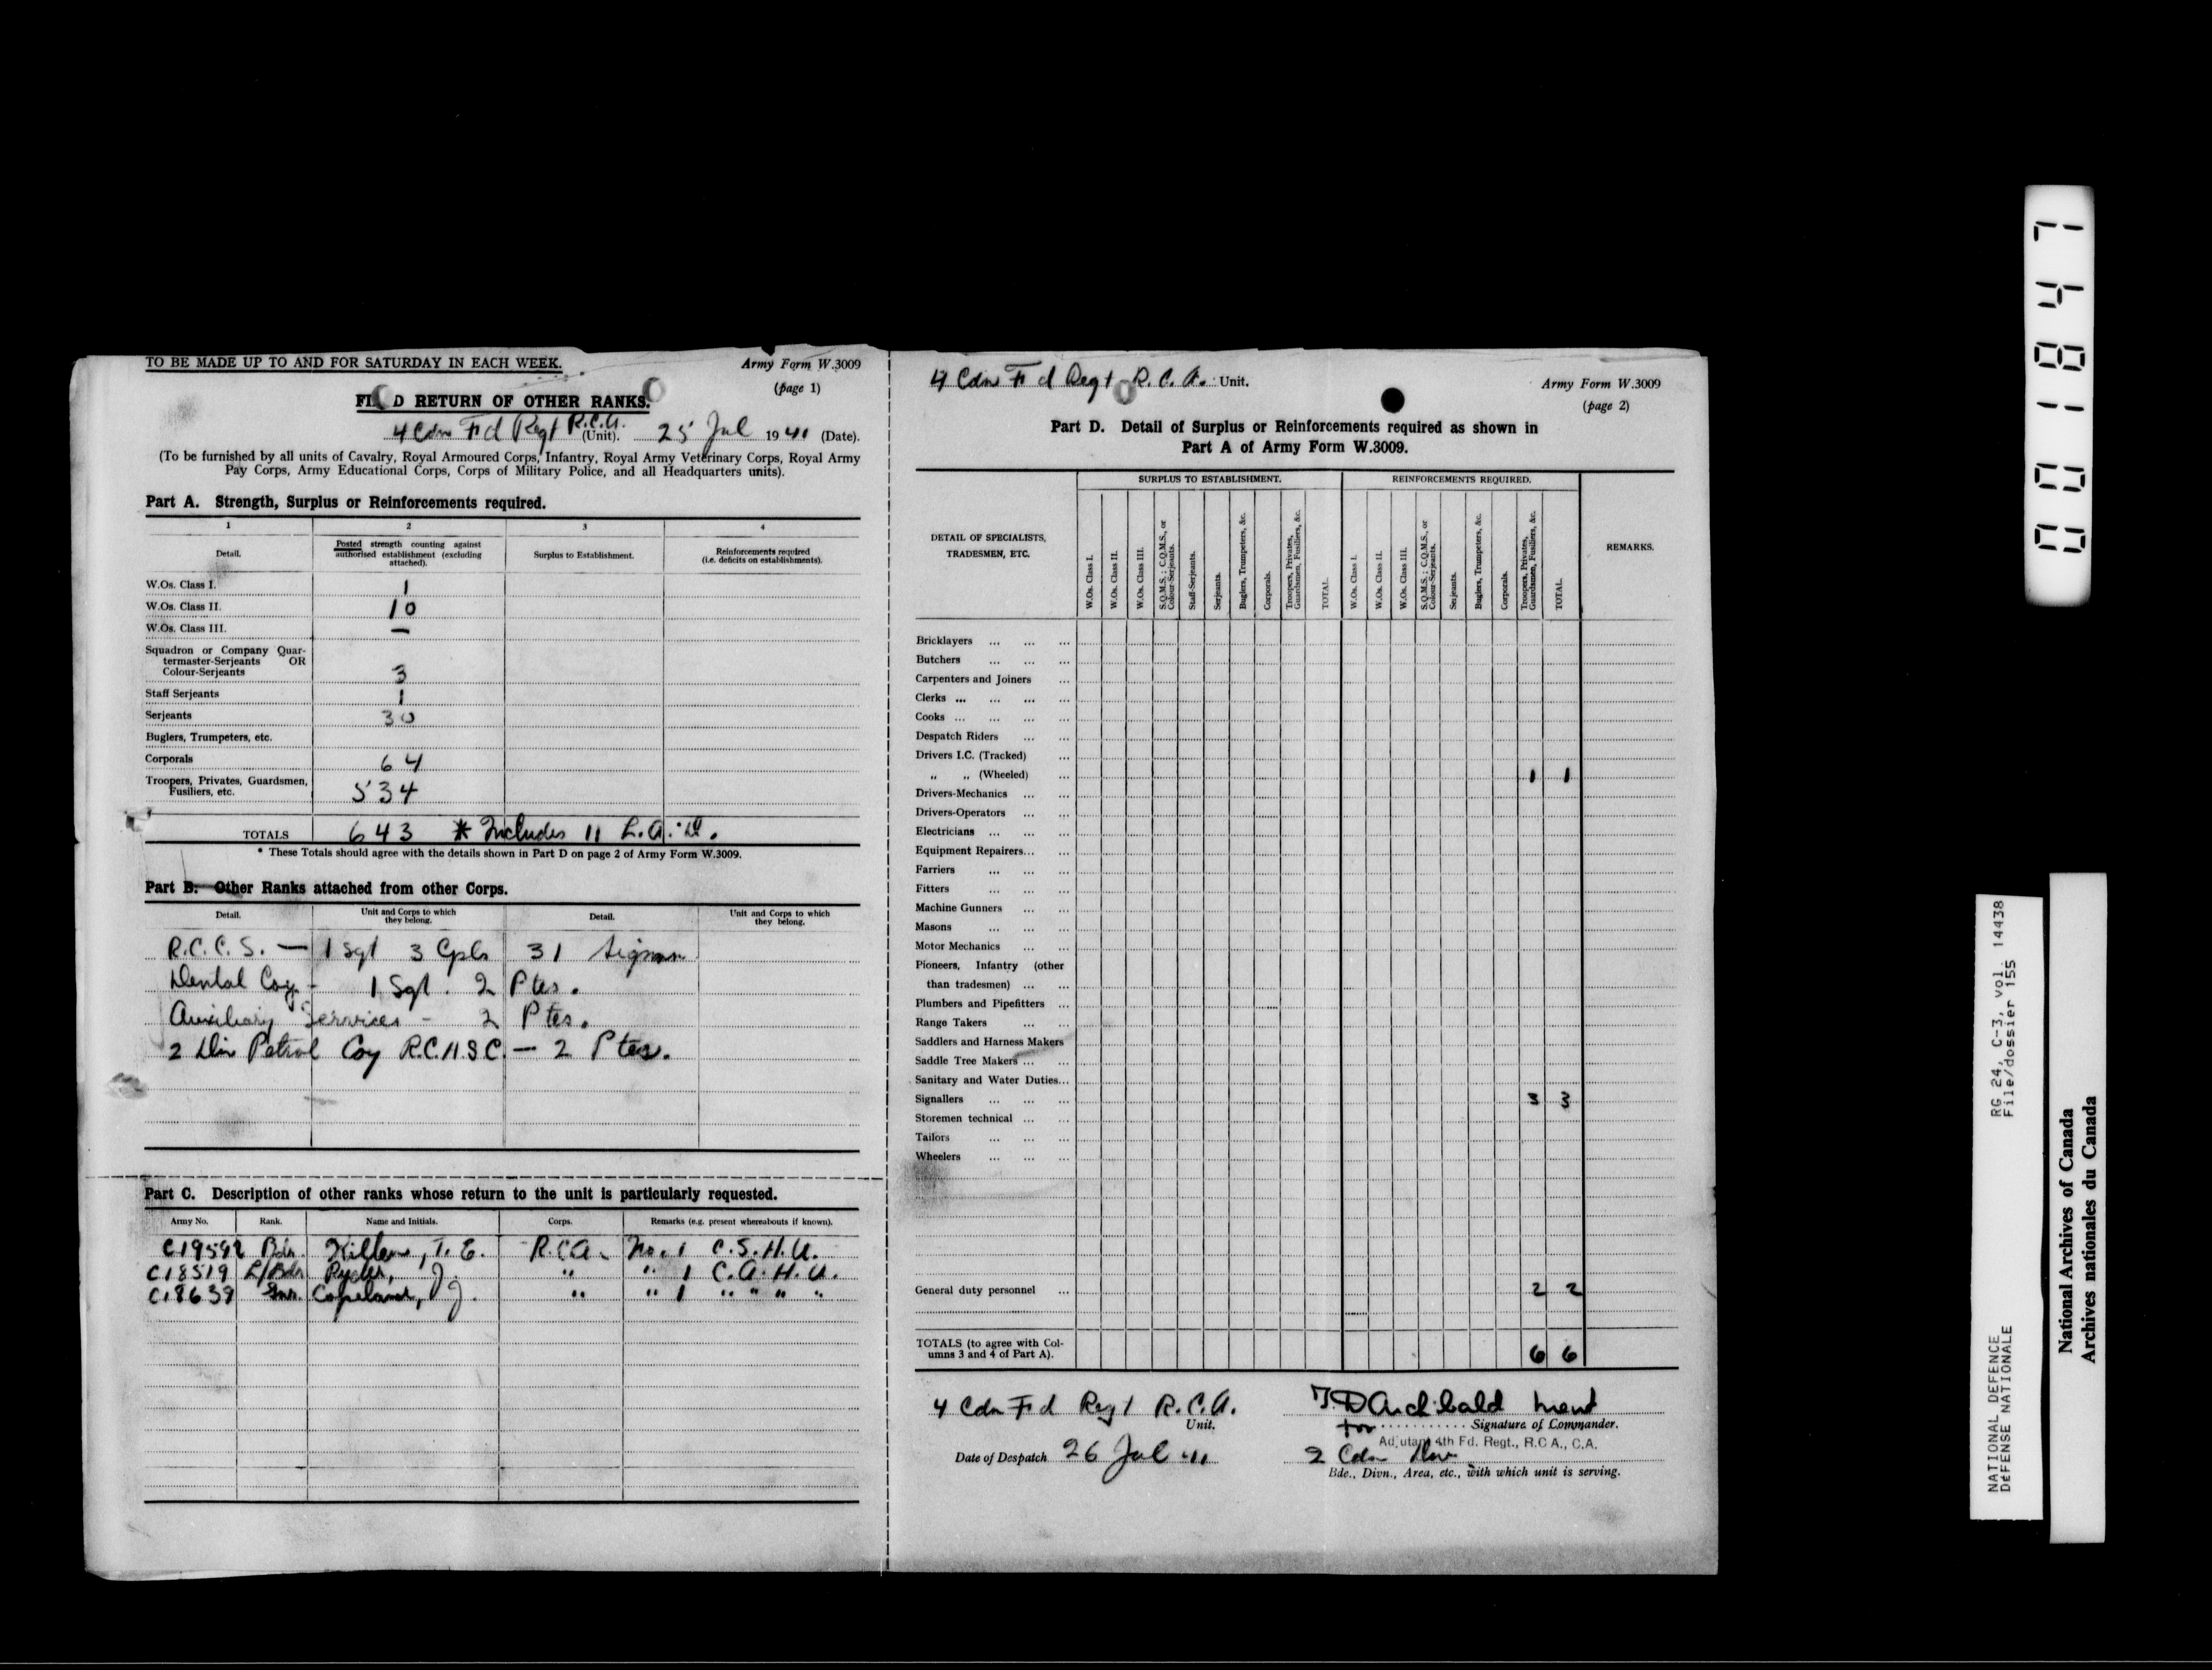 TO BE MADE UP TO AND FOR SATURDAY IN EACH WEEK.
Army Form W.3009
(page 1)
FI D RETURN OF OTHER RANKS.
4 Cdn Fd Regt R.C.A. (Unit). 25 Jul 1941 (Date).
(To be furnished by all units of Cavalry, Royal Armoured Corps, Infantry, Royal Army Veterinary Corps, Royal Army
Pay Corps, Army Educational Corps, Corps of Military Police, and all Headquarters units).
Part A. Strength, Surplus or Reinforcements required.
1 2 3 4
Detail.
Posted strength counting against
authorised establishment (excluding
attached).
Surplus to Establishment.
Reinforcements required
(i.e. deficits on establishments).
W.Os. Class I. 1
W.Os. Class II. 10
W.Os. Class III. —
Squadron or Company Quar-
termaster-Serjeants OR
Colour-Serjeants 3
Staff Serjeants 1
Serjeants 30
Buglers, Trumpeters, etc.
Corporals 64
Troopers, Privates, Guardsmen,
Fusiliers, etc. 534
TOTALS 643 * Includes 11 L.A.D.
* These Totals should agree with the details shown in Part D on page 2 of Army Form W.3009.
Part B. Other Ranks attached from other Corps.
Detail.
Unit and Corps to which
they belong.
Detail.
Unit and Corps to which
they belong.
R.C.C.S. — 1 Sgt 3 Cpls 31 Sigmn
Dental Coy - 1 Sgt. 2 Ptes.
Auxiliary Services - 2 Ptes.
2 Div Petrol Coy R.C.A.S.C. — 2 Ptes.
Part C. Description of other ranks whose return to the unit is particularly requested.
Army No. Rank. Name and Initials. Corps. Remarks (e.g. present whereabouts if known).
Bdr. T. E. R.C.A. No. 1 C.S.H.U.
C18519 L/Bdr Ryder, J. " " 1 C.A.H.U.
C18639 Gnr. Copeland, J. " " 1 " " " "
4 Cdn Fd Regt R.C.A. Unit.
Army Form W.3009
(page 2)
Part D. Detail of Surplus or Reinforcements required as shown in
Part A of Army Form W.3009.
DETAIL OF SPECIALISTS,
TRADESMEN, ETC.
SURPLUS TO ESTABLISHMENT.
W.Os. Class I.
W.Os. Class II.
W.Os. Class III.
S.Q.M.S.; C.Q.M.S., or
Colour-Serjeants.
Staff-Serjeants.
Serjeants.
Buglers, Trumpeters, &c.
Corporals.
Troopers, Privates,
Guardsmen, Fusiliers, &c.
TOTAL.
REINFORCEMENTS REQUIRED.
W.Os. Class I.
W.Os. Class II.
W.Os. Class III.
S.Q.M.S.; C.Q.M.S., or
Colour-Serjeants.
Serjeants.
Buglers, Trumpeters, &c.
Corporals.
Troopers, Privates,
Guardsmen, Fusiliers, &c.
TOTAL.
REMARKS.
Bricklayers ... ... ...
Butchers ... ... ...
Carpenters and Joiners ...
Clerks ... ... ... ...
Cooks ... ... ... ...
Despatch Riders ... ...
Drivers I.C. (Tracked) ...
" " (Wheeled) ... 1 1
Drivers-Mechanics ... ...
Drivers-Operators ... ...
Electricians ... ... ...
Equipment Repairers... ...
Farriers ... ... ...
Fitters ... ... ...
Machine Gunners ... ...
Masons ... ... ...
Motor Mechanics ... ...
Pioneers, Infantry (other
than tradesmen) ... ...
Plumbers and Pipefitters ...
Range Takers ... ...
Saddlers and Harness Makers
Saddle Tree Makers ... ...
Sanitary and Water Duties...
Signallers ... ... ... 3 3
Storemen technical ... ...
Tailors ... ... ...
Wheelers ... ... ...
General duty personnel ... 2 2
TOTALS (to agree with Col-
umns 3 and 4 of Part A). 6 6
4 Cdn Fd Regt R.C.A.
Unit.
Date of Despatch 26 Jul 41
Archibald Lieut
for Signature of Commander.
Adjutant 4th Fd. Regt., R.C.A., C.A.
2 Cdn Div
Bde., Divn., Area, etc., with which unit is serving.
001847
NATIONAL DEFENCE RG 24, C-3, vol. 14438
DÉFENSE NATIONALE File/dossier 155
National Archives of Canada
Archives nationales du Canada